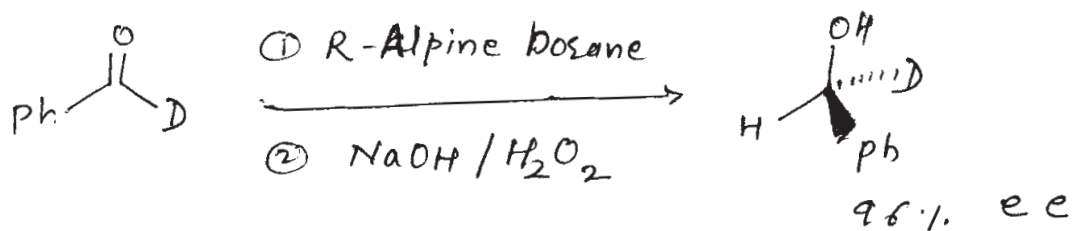 O
Ph
D
① R-Alpine borane
② NaOH / H₂O₂
OH
D
H
Ph
96 % ee